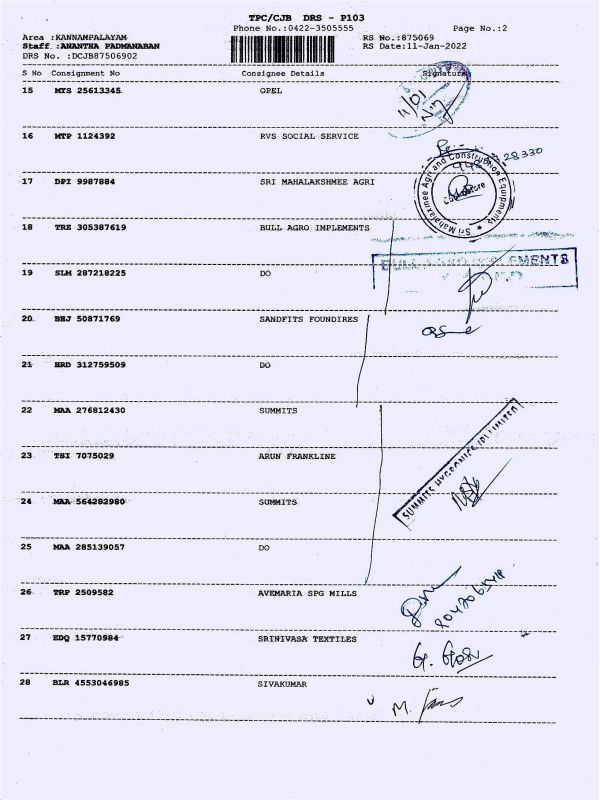 TPC/CJB DRS - P103
Phone No.:0422-3505555 Page No.:2
Area :KANNAMPALAYAM RS No.:875069
Staff :ANANTHA PADMANABAN RS Date:11-Jan-2022
DRS No. :DCJB87506902
S No Consignment No Consignee Details Signature
15 MTS 25613345 OPEL
11/01
16 MTP 1124392 RVS SOCIAL SERVICE
28330
17 DPI 9987884 SRI MAHALAKSHMEE AGRI
Sri Mahalaxmee Agri and Construction Equipments
Coimbatore
18 TRZ 305387619 BULL AGRO IMPLEMENTS
19 SLM 287218225 DO
BULL IMPLEMENTS
20 BHJ 50871769 SANDFITS FOUNDIRES
21 HRD 312759509 DO
22 MAA 276812430 SUMMITS
SUMMITS HYGRONICS (P) LIMITED
23 TSI 7075029 ARUN FRANKLINE
24 MAA 564282980 SUMMITS
25 MAA 285139057 DO
26 TRP 2509582 AVEMARIA SPG MILLS
27 EDQ 15770984 SRINIVASA TEXTILES
28 BLR 4553046985 SIVAKUMAR
M.